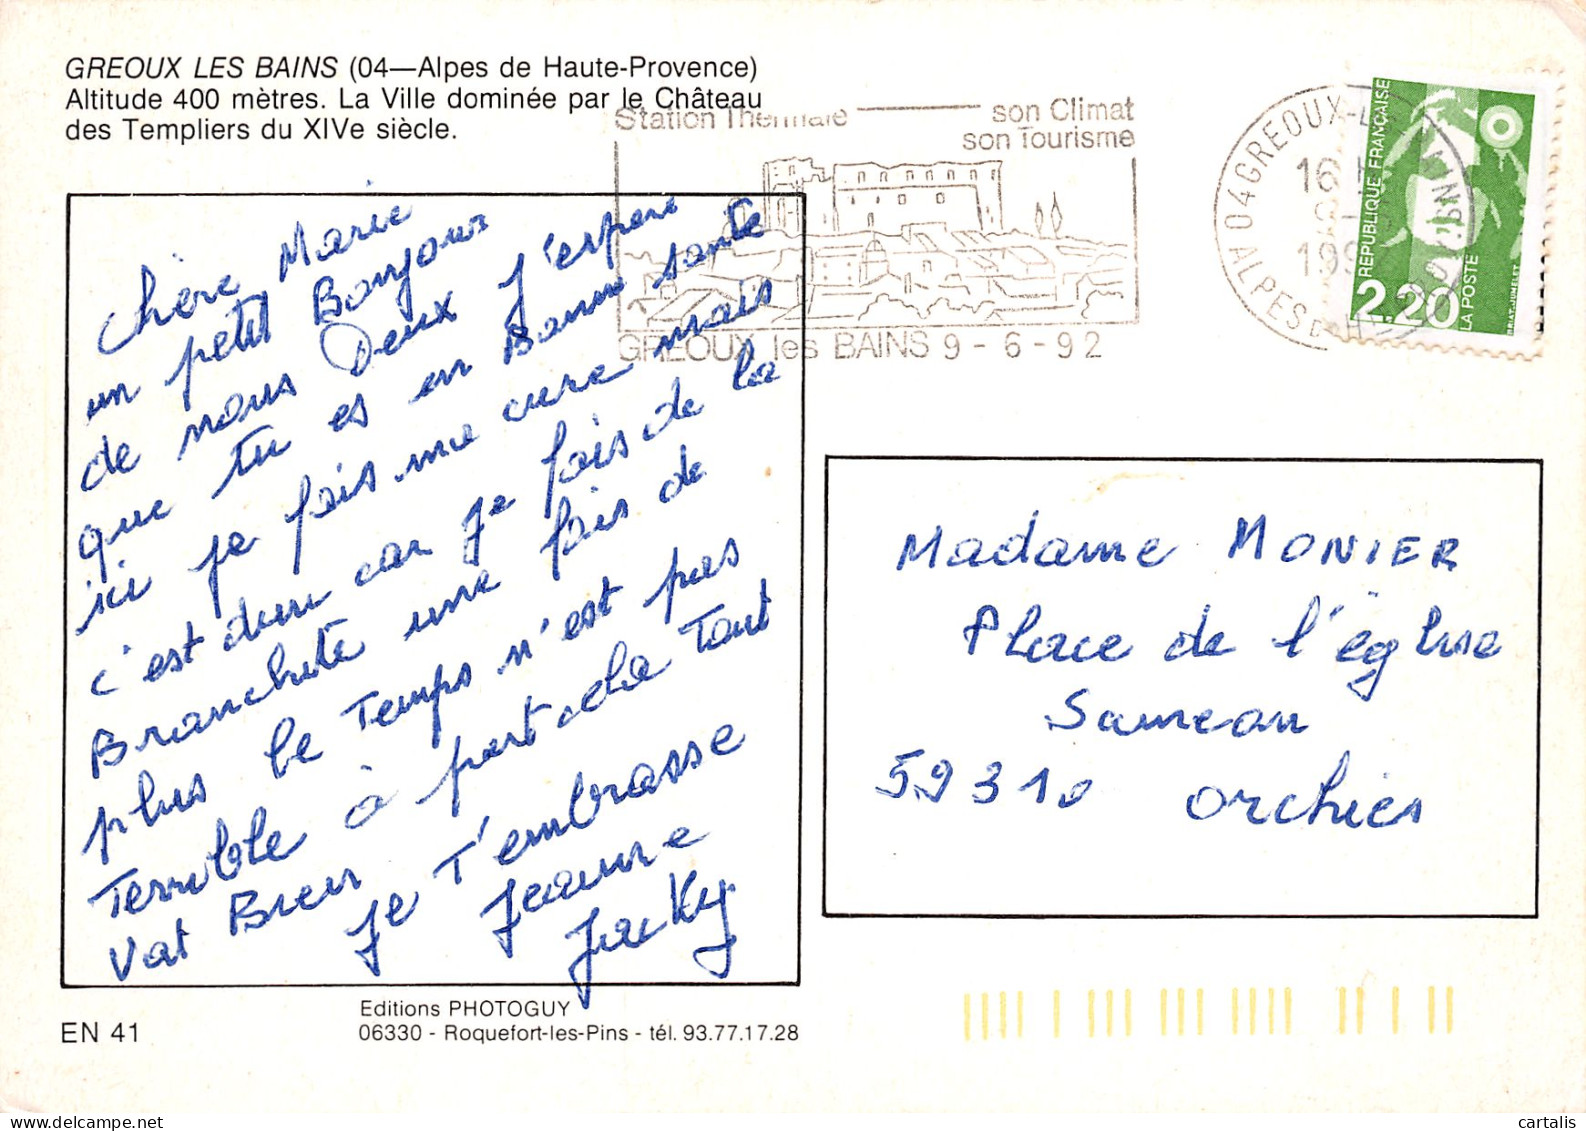 GREOUX LES BAINS (04—Alpes de Haute-Provence)
Altitude 400 mètres. La Ville dominée par le Château
des Templiers du XIVe siècle.
Station Thermale son Climat
son Tourisme
GREOUX les BAINS 9 - 6 - 92
04 GREOUX-LES-BAINS
ALPES DE HTE
16 H
9 - 6
199
REPUBLIQUE FRANÇAISE
2,20
LA POSTE
BRIAT-JUMELET
chère Marie
un petit Bonjour
de nous Deux J'espère
que tu es en Bonne santé
ici je fais une cure mais
c'est dur car je fais de la
Branchite une fois de
plus le Temps n'est pas
Terrible à part cela Tout
vat Bien
Je T'embrasse
Jeanne
Jacky
Madame MONIER
Place de l'église
Sameon
59310 Orchies
EN 41
Editions PHOTOGUY
06330 - Roquefort-les-Pins - tél. 93.77.17.28
cartalis